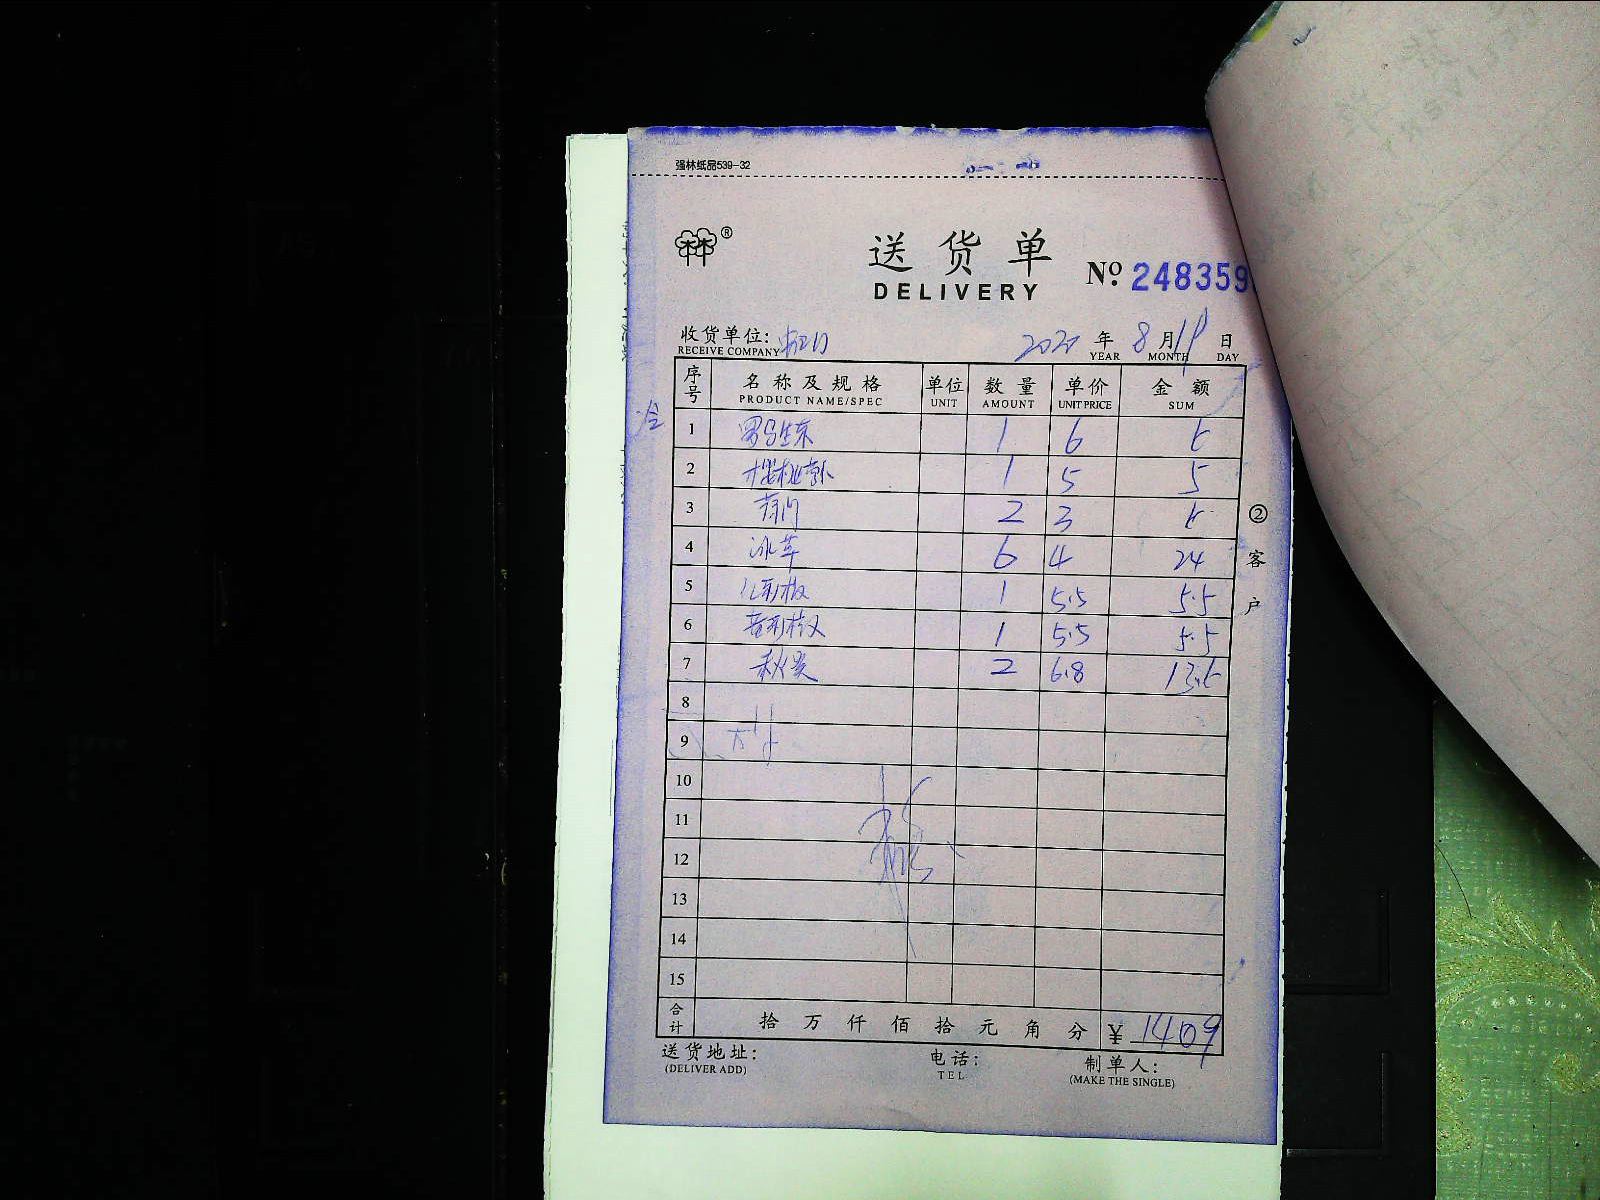 强林纸品539-32
林林®
送货单
Nº 248359
DELIVERY
收货单位: 2020 年 8 月 日
RECEIVE COMPANY YEAR MONTH DAY
序号 名称及规格 单位 数量 单价 金额
PRODUCT NAME/SPEC UNIT AMOUNT UNIT PRICE SUM
1 1 6 6
2 樱桃 1 5 5
3 2 3 6
4 冰草 6 4 24
5 1 5.5 5.5
6 1 5.5 5.5
7 秋葵 2 6.8 13.6
8
9
10
11
12
13
14
15
合计 拾万仟佰拾元角分 ¥ 1409
② 客户
送货地址: 电话: 制单人:
(DELIVER ADD) TEL (MAKE THE SINGLE)